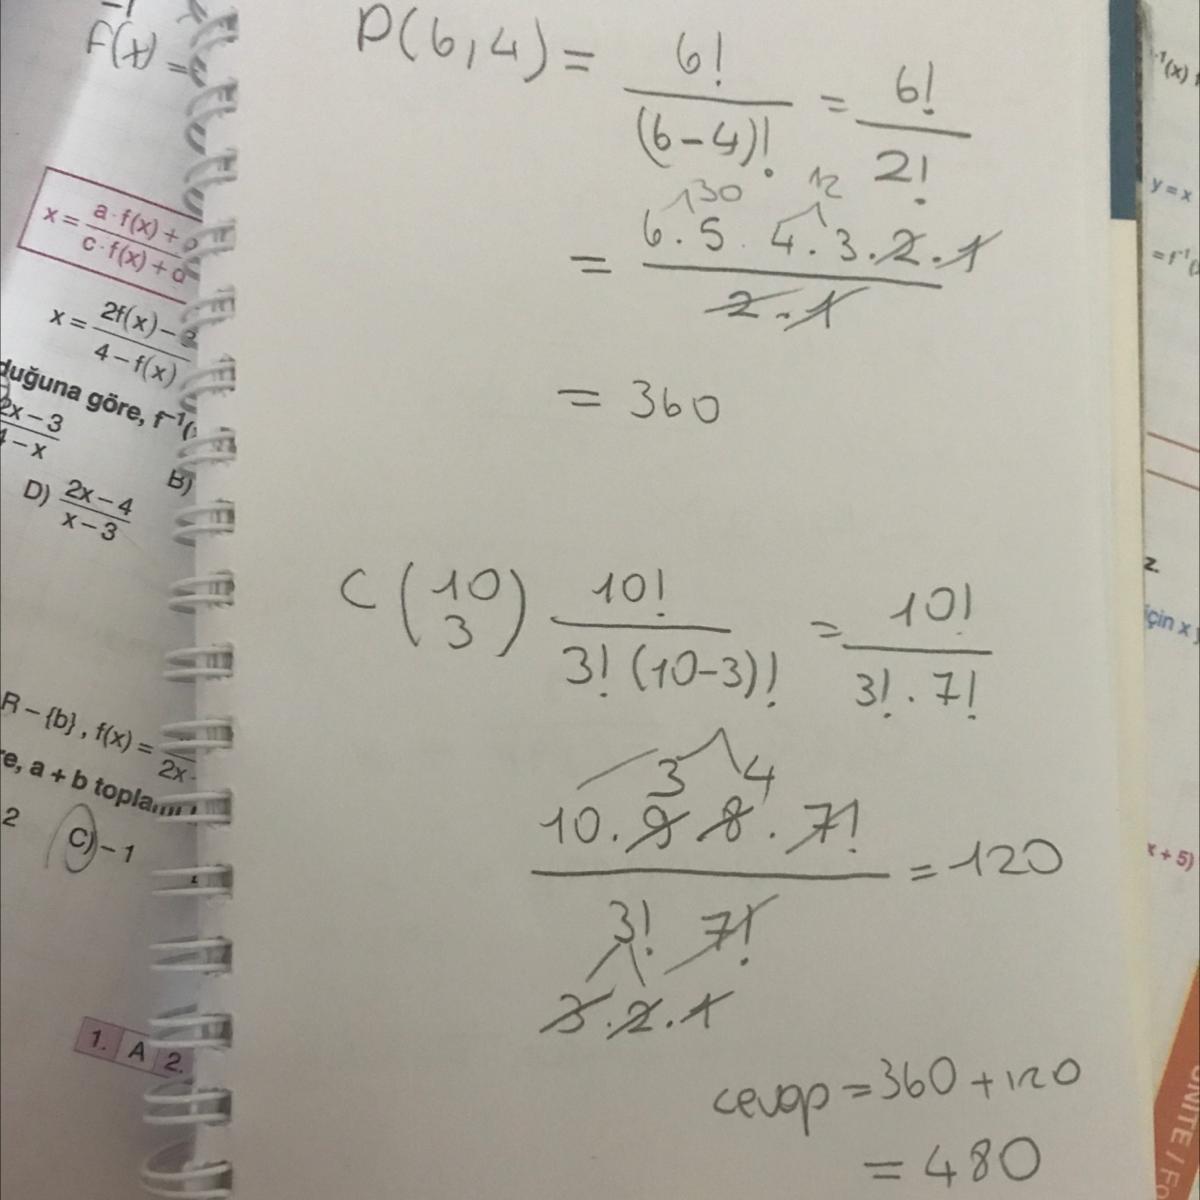 f⁻¹(x) =
x = a·f(x) +
c·f(x) +
x = 2f(x) –
4 – f(x)
duğuna göre, f⁻¹(
2x – 3
4 – x
B)
D) 2x – 4
x – 3
R – {b}, f(x) =
2x
re, a + b toplamı
2 C) – 1
1. A 2.
P(6,4) = 6! / (6-4)! = 6! / 2!
30 12
= 6.5.4.3.2.1 / 2.1
= 360
C (10 3) 10! / 3! (10-3)! = 10! / 3!.7!
3 4
10.9 8.7! / 3! 7! = 120
3.2.1
cevap = 360 + 120
= 480
⁻¹(x) f
y = x
= f⁻¹(
z.
için x
x + 5)
ÜNİTE / Fo